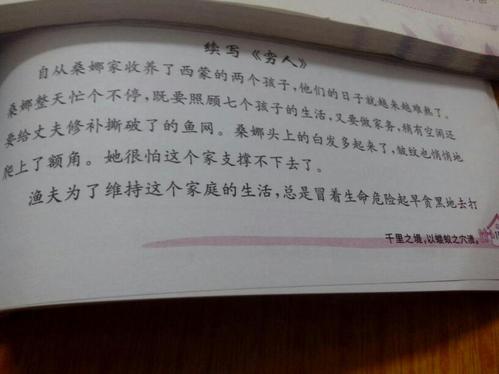 续写《穷人》
自从桑娜家收养了西蒙的两个孩子，他们的日子就越来越难熬了。
桑娜整天忙个不停，既要照顾七个孩子的生活，又要做家务，稍有空闲还
要给丈夫修补撕破了的鱼网。桑娜头上的白发多起来了，皱纹也悄悄地
爬上了额角。她很怕这个家支撑不下去了。
渔夫为了维持这个家庭的生活，总是冒着生命危险起早贪黑地去打
千里之堤，以蝼蚁之穴溃。